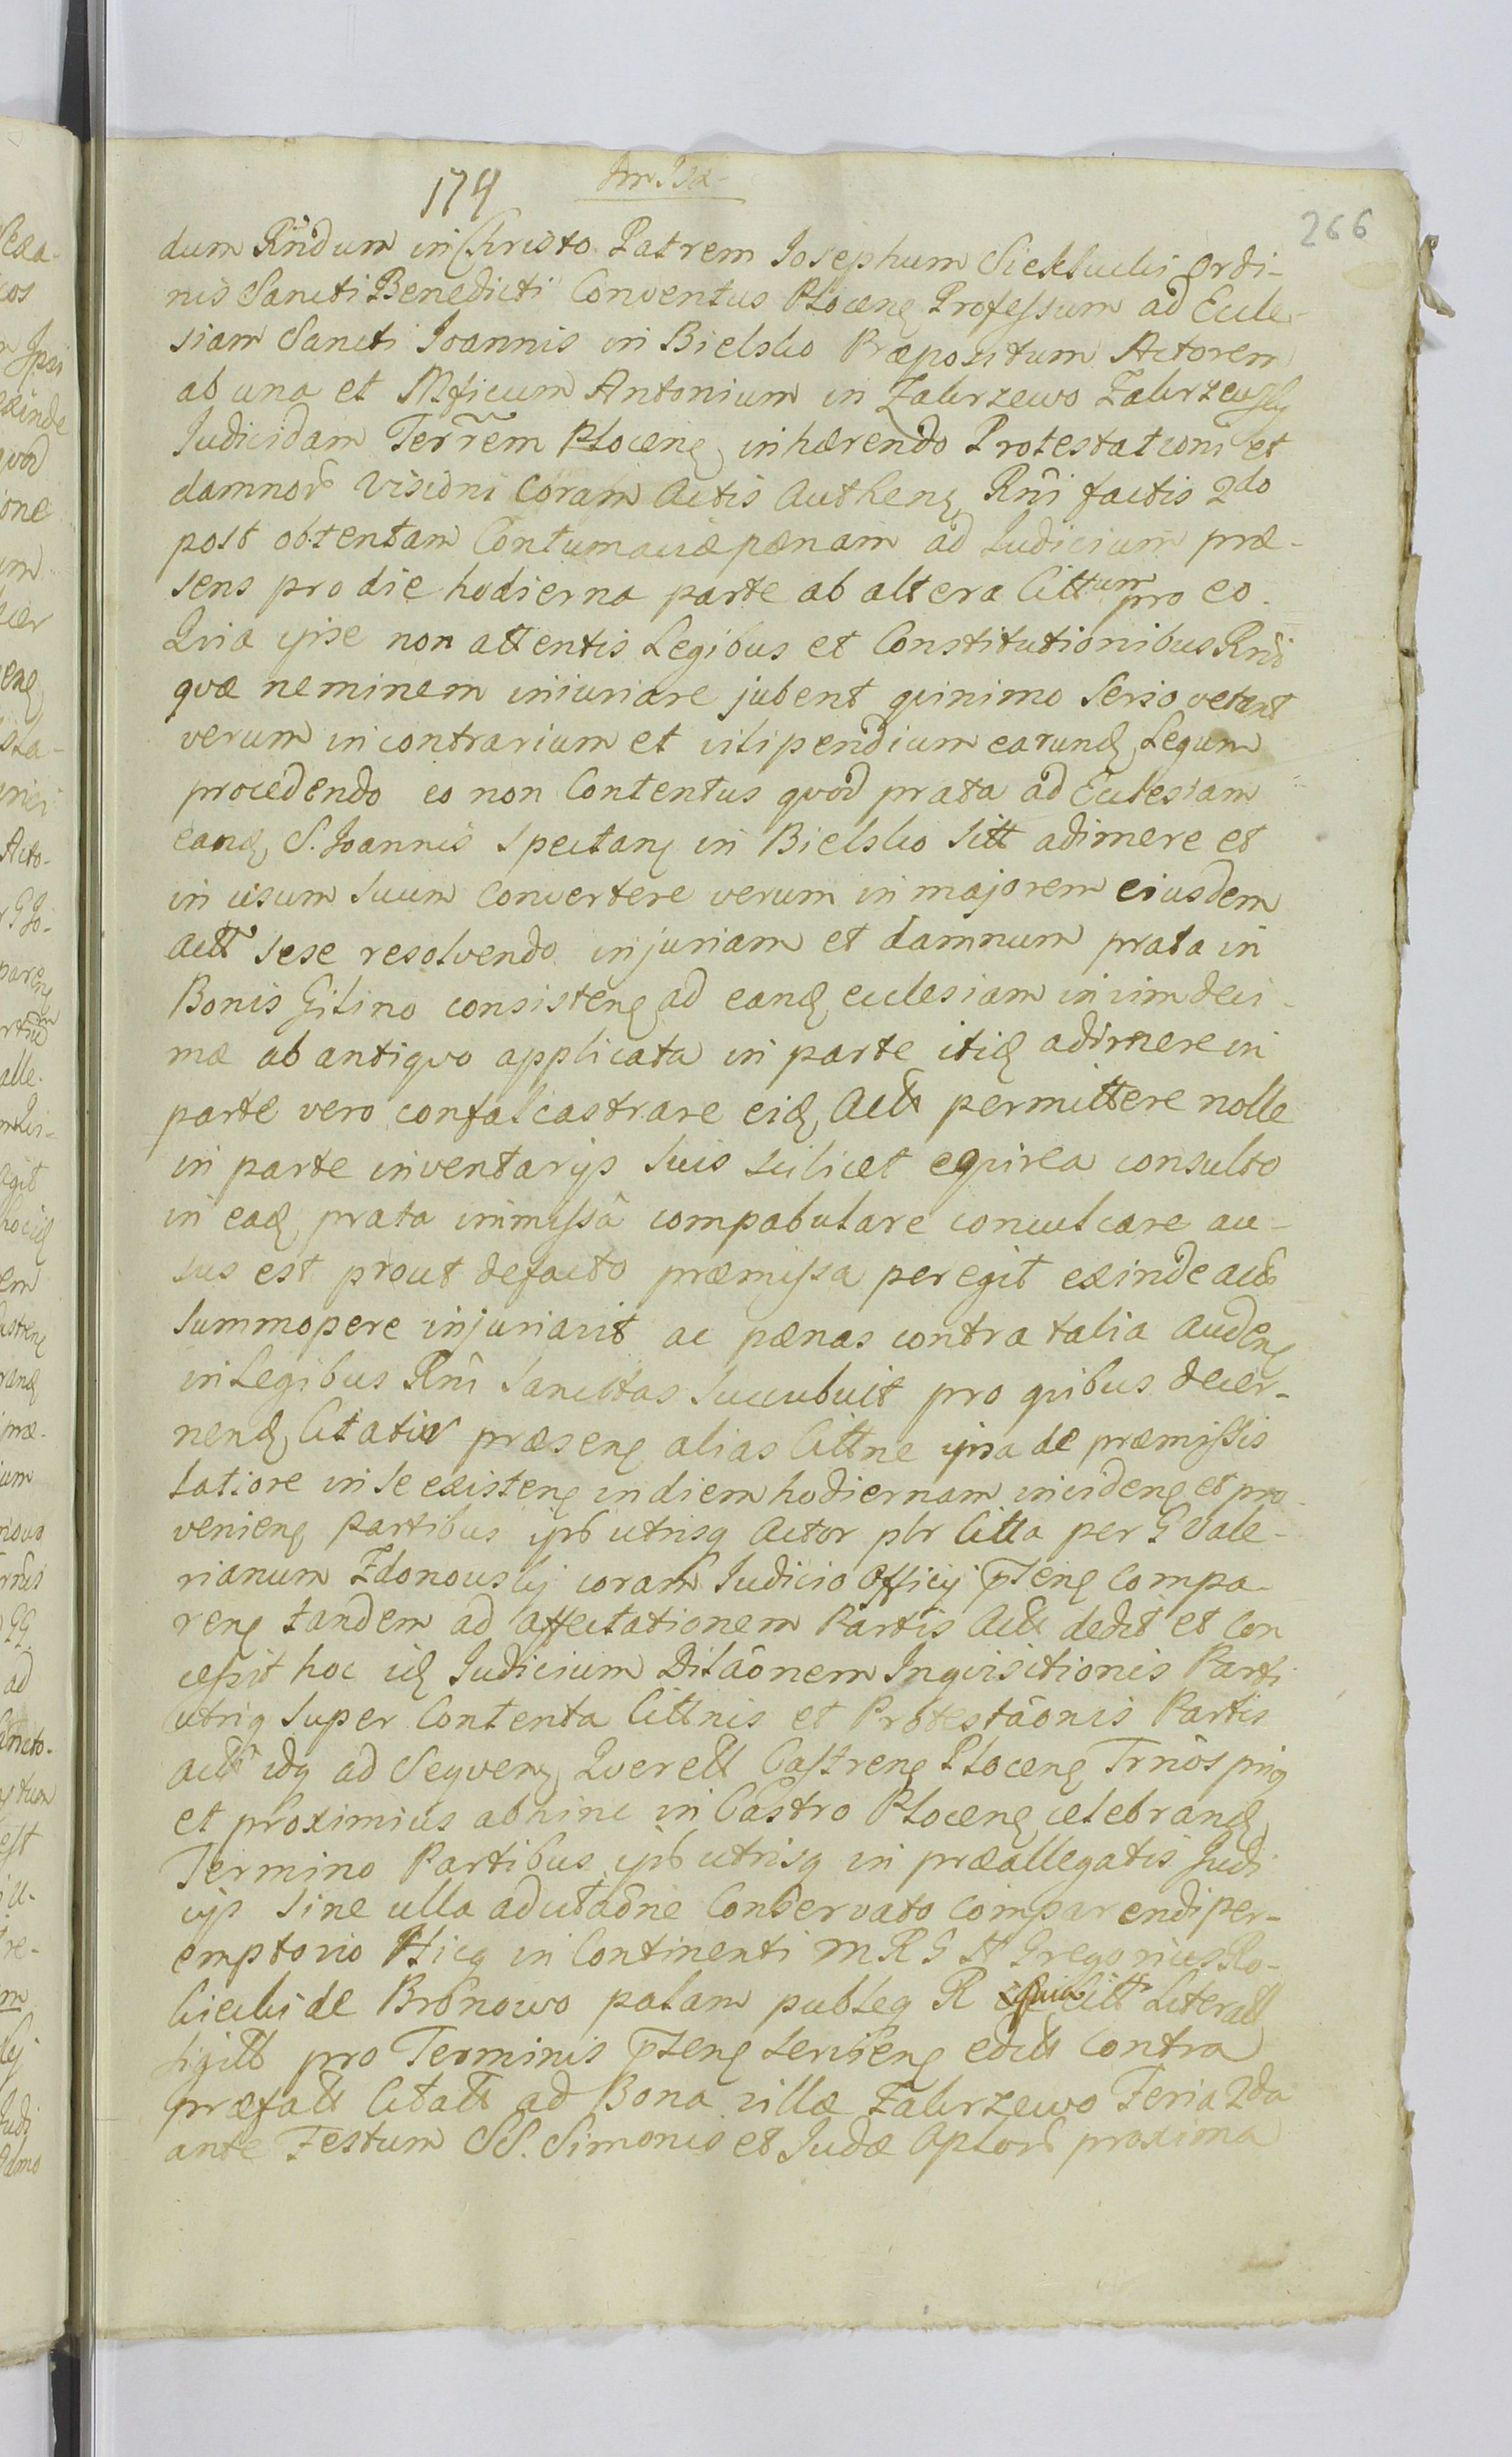 174
266
dum Rndum in Christo Patrem Josephum Siekłucki Ordi-
nis Sancti Benedicti Conventus Plocens Professum ad Eccle-
siam Sancti Joannis in Bielsko Præpositum Actorem
ab una et Mficum Antonium in Zakrzewo Zakrzewsky
Judicidam Terrem Plocens inhærendo Protestationi et
damnor Visioni Coram Actis Authens Rni factis 2do
post obtentam Contumaciæ pænam ad Judicium præ-
sens pro die hodierna parte ab altera Cittum pro eo.
Qvia ipse non attentis Legibus et Constitutionibus Rni
qvæ neminem iniuriare jubent qvinimo Serio vetant
verum in contrarium et vilipendium earund Legum
procedendo eo non Contentus qvod prata ad Ecclesiam
eand S. Joannis Spectans in Bielsko Sitt adimere et
in usum suum Convertere verum in majorem eiusdem
Actt sese resolvendo injuriam et damnum prata in
Bonis Gilino consistens ad eand ecclesiam in vim deci-
mæ ab antiqvo applicata in parte itid adimere in
parte vero confalcastrare eid Actt permittere nolle
in parte inventarijs suis scilicet eqvirea consulto
in ead prata immissâ compabulare conculcare au-
sus est prout defacto præmissa peregit exinde actt
Summopere injuriavit ac pænas contra talia audens
in Legibus Rni Sancitas Succubuit pro qvibus decer-
nend Citatus præsens alias Cittne ipsa de præmissis
latiore in se existens in diem hodiernam incidens et pro-
veniens Partibus ipb utrisq Actor pbr Citta per G Vale-
rianum Zdonowsky coram Judicio Officij pnens Compa-
rens tandem ad affectationem Partis Actt dedit et Con
cessit hoc id Judicium Dilãonem Inqvisitionis Parti
utriq Super Contenta Cittnis et Protestãonis Partis
actt idq ad Seqvens Qverell Castrens Plocens Trnos priq
et proximius abhinc in Castro Plocens celebrand
Termino Partibus ipb utrisq in præallegatis Judi
cijs Sine ulla adcitaõne Conservato comparendi per-
emptorio Hicq in Continenti M R G N Gregorius Ro-
kicki de Bronowo palam publeq R Citt Literall
sigill pro Terminis pnens serviens edictt Contra
præfatt Citatt ad Bona villæ Zakrzewo Feria 2da
ante Festum SS. Simonis et Judæ Aplorb proxima